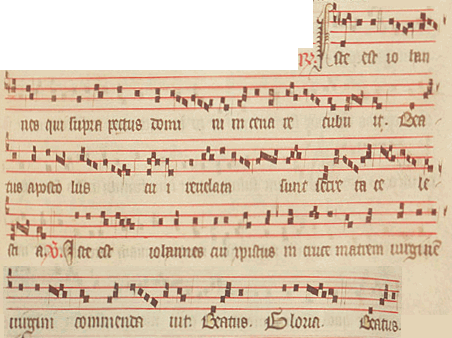 R. Iste est io han
nes qui supra pectus domi ni in cena re cubu it. Bea
tus aposto lus cu i reuelata sunt secre ta ce le
sti a. V. Iste est iohannes cui xpistus in cruce matrem uirginem
uirgini commenda uit. Beatus. Gloria. Beatus.